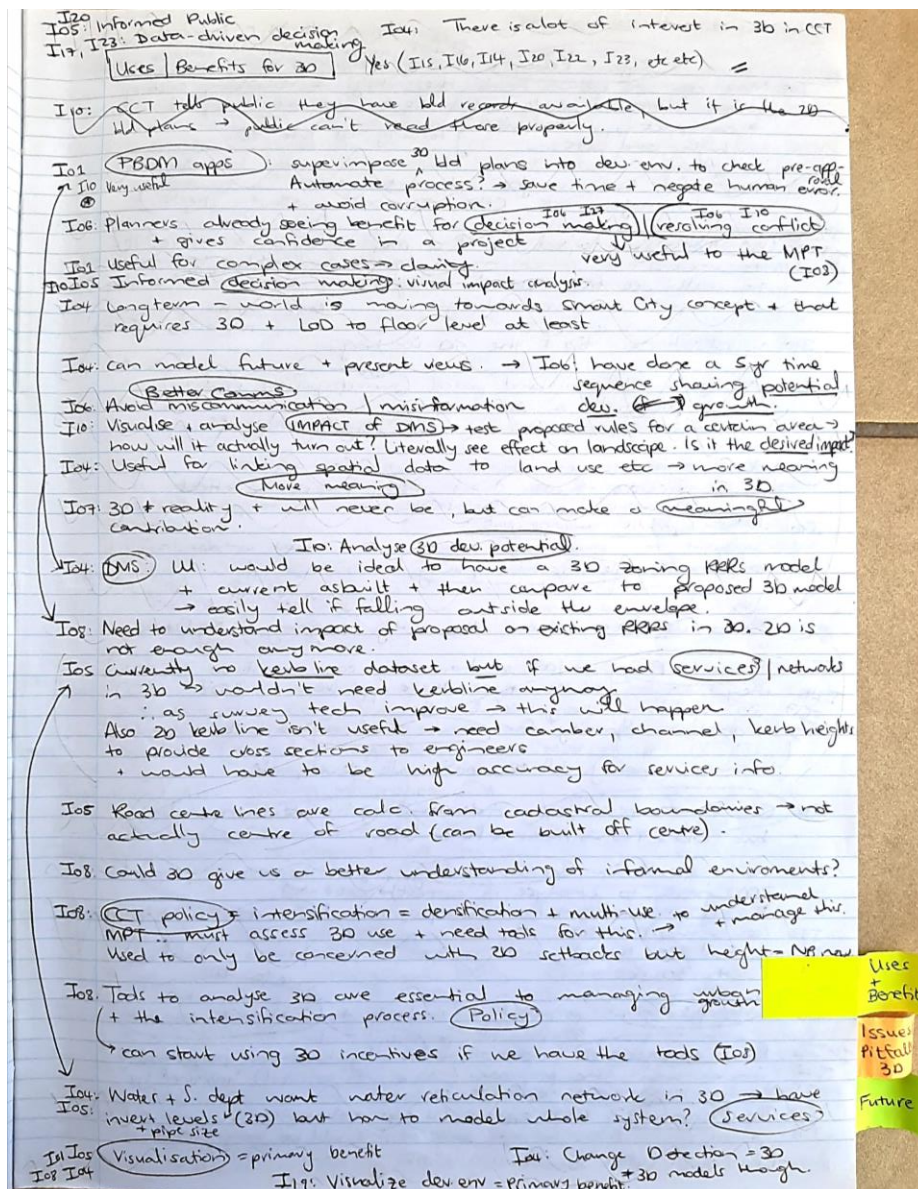 I20
I05: Informed Public
I17, I23: Data-driven decision making
I04: There is a lot of interest in 3D in CCT
Uses | Benefits for 3D
Yes (I15, I16, I14, I20, I22, I23, etc etc)
I10: CCT tells public they have bld records available, but it is the 2D
bld plans → public can't read those properly.
I01 PBDM apps : superimpose 3D bld plans into dev. env. to check pre-approval
I10 Very useful
Automate process? → save time + negate human error.
+ avoid corruption.
I06: Planners already seeing benefit for decision making I06 I27 | resolving conflict I06 I10
+ gives confidence in a project
very useful to the MPT (I03)
I01 Useful for complex cases → clarity.
I10 I05 Informed decision making: visual impact analysis.
I04 Longterm - world is moving towards Smart City concept + that
requires 3D + LoD to floor level at least
I04: Can model future + present views. → I06: have done a 5yr time
sequence showing potential
dev. growth.
Better Comms
I06: Avoid miscommunication | misinformation
I10: Visualise + analyse IMPACT of DMS → test proposed rules for a certain area →
how will it actually turn out? Literally see effect on landscape. Is it the desired impact?
I04: Useful for linking spatial data to land use etc → more meaning
in 3D
More meaning
I07: 3D ≠ reality + will never be, but can make a meaningful
contribution.
I10: Analyse 3D dev. potential.
I04: DMS: LU: would be ideal to have a 3D zoning RRRs model
+ current asbuilt + then compare to proposed 3D model
→ easily tell if falling outside the envelope.
I08: Need to understand impact of proposal on existing RRRs in 3D. 2D is
not enough any more.
I05 Currently no kerbline dataset but if we had services | networks
in 3D → wouldn't need kerbline anyway
∴ as survey tech improve → this will happen
Also 2D kerb line isn't useful → need camber, channel, kerb heights
to provide cross sections to engineers
+ would have to be high accuracy for services info.
I05 Road centre lines are calc. from cadastral boundaries → not
actually centre of road (can be built off centre).
I08: Could 3D give us a better understanding of informal enviroments?
I08: CCT policy = intensification = densification + multi-use. to understand
+ manage this.
MPT ∴ must assess 3D use + need tools for this. →
Used to only be concerned with 2D setbacks but height = NB now
I08. Tools to analyse 3D are essential to managing urban
growth
+ the intensification process. Policy
→ can start using 3D incentives if we have the tools (I08)
I04: Water + S. dept want water reticulation network in 3D → have
I05: invert levels (3D) but how to model whole system? Services
+ pipe size
I01 I05 Visualisation = primary benefit
I08 I04
I04: Change Detection = 3D
≠ 3D models though.
I19: Visualize dev env = primary benefit.
Uses
+
Benefit
Issues
Pitfall
3D
Future